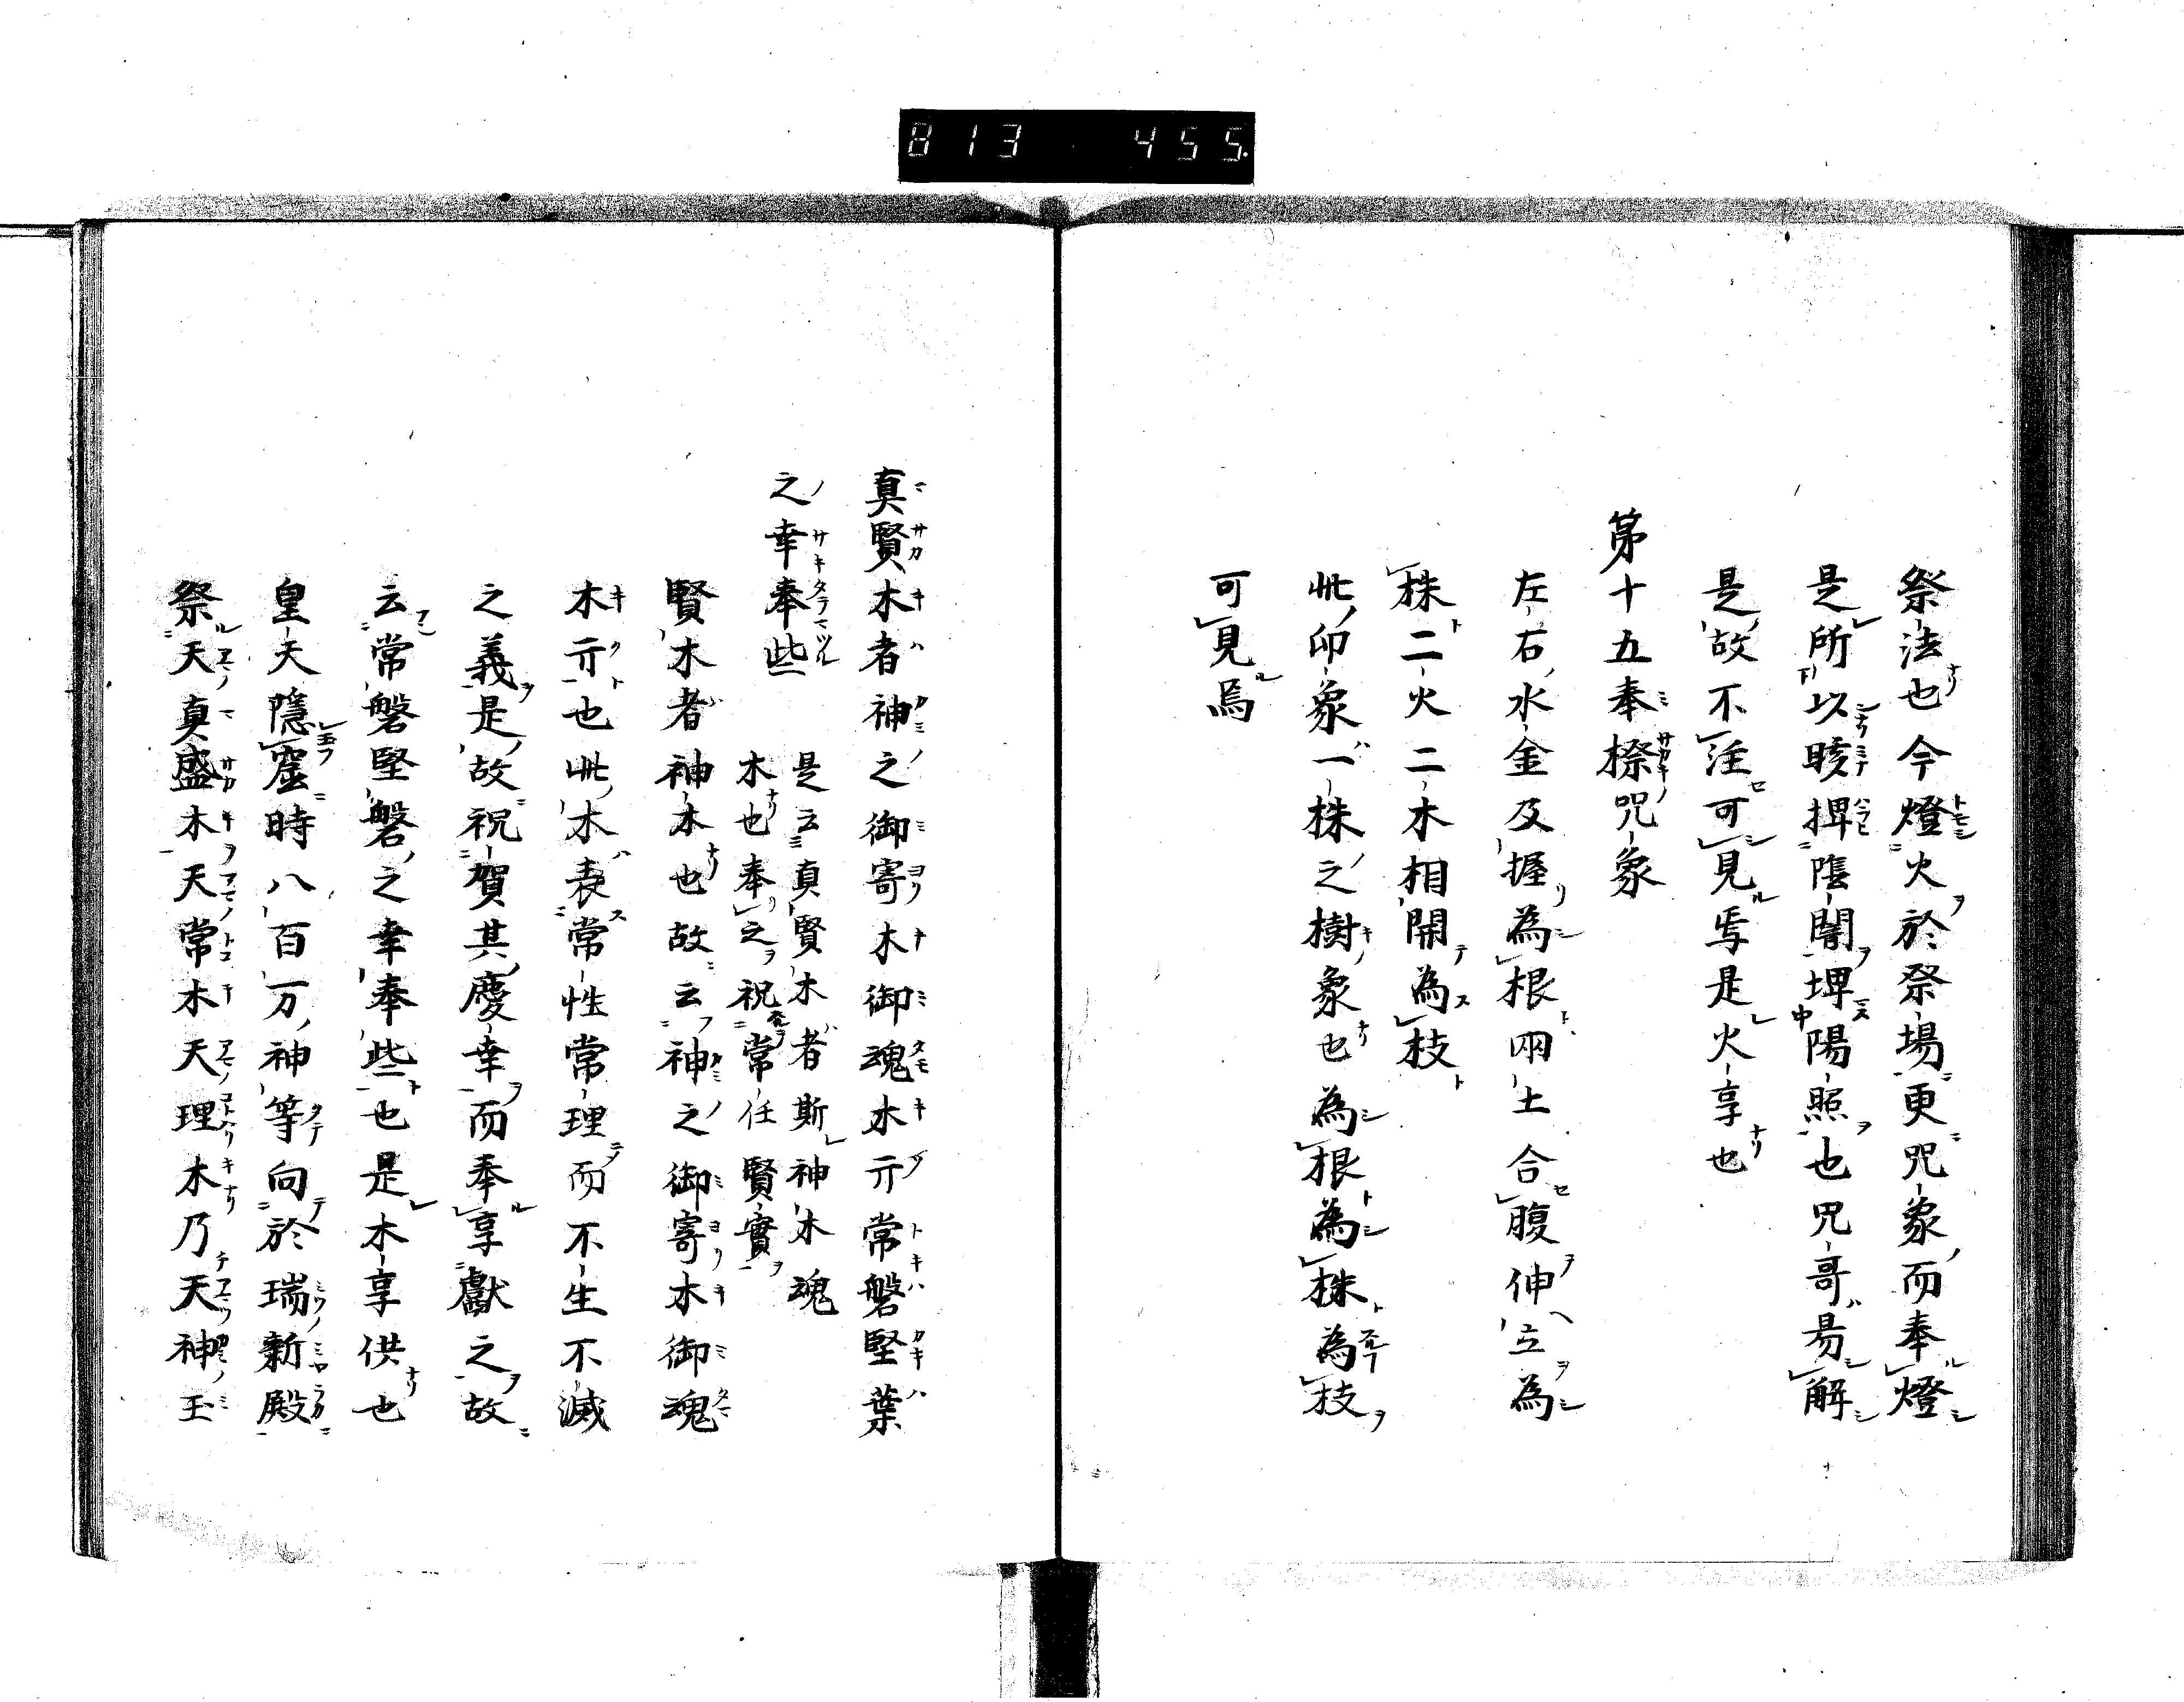 813 455.
祭法也今燈火於祭場更咒象而奉燈
是所以晐捭陰闇埤陽照也咒哥易解
是故不注可見焉是火享也
第十五奉榊咒象
左右水金及握為根兩土合腹伸立為
株二火二木相開為枝
此印象一株之樹象也為根為株為枝
可見焉
真賢木者神之御寄木御魂木亓常磐堅葉
之幸奉些
是云真賢木者斯神木魂
木也奉之祝常任賢實
賢木者神木也故云神之御寄木御魂
木亓也此木表常性常理而不生不滅
之義是故祝賀其慶幸而奉享獻之故
云常磐堅磐之幸奉些也是木享供也
皇天隱窟時八百万神等向於瑞新殿
祭天真盛木天常木天理木乃天神玉